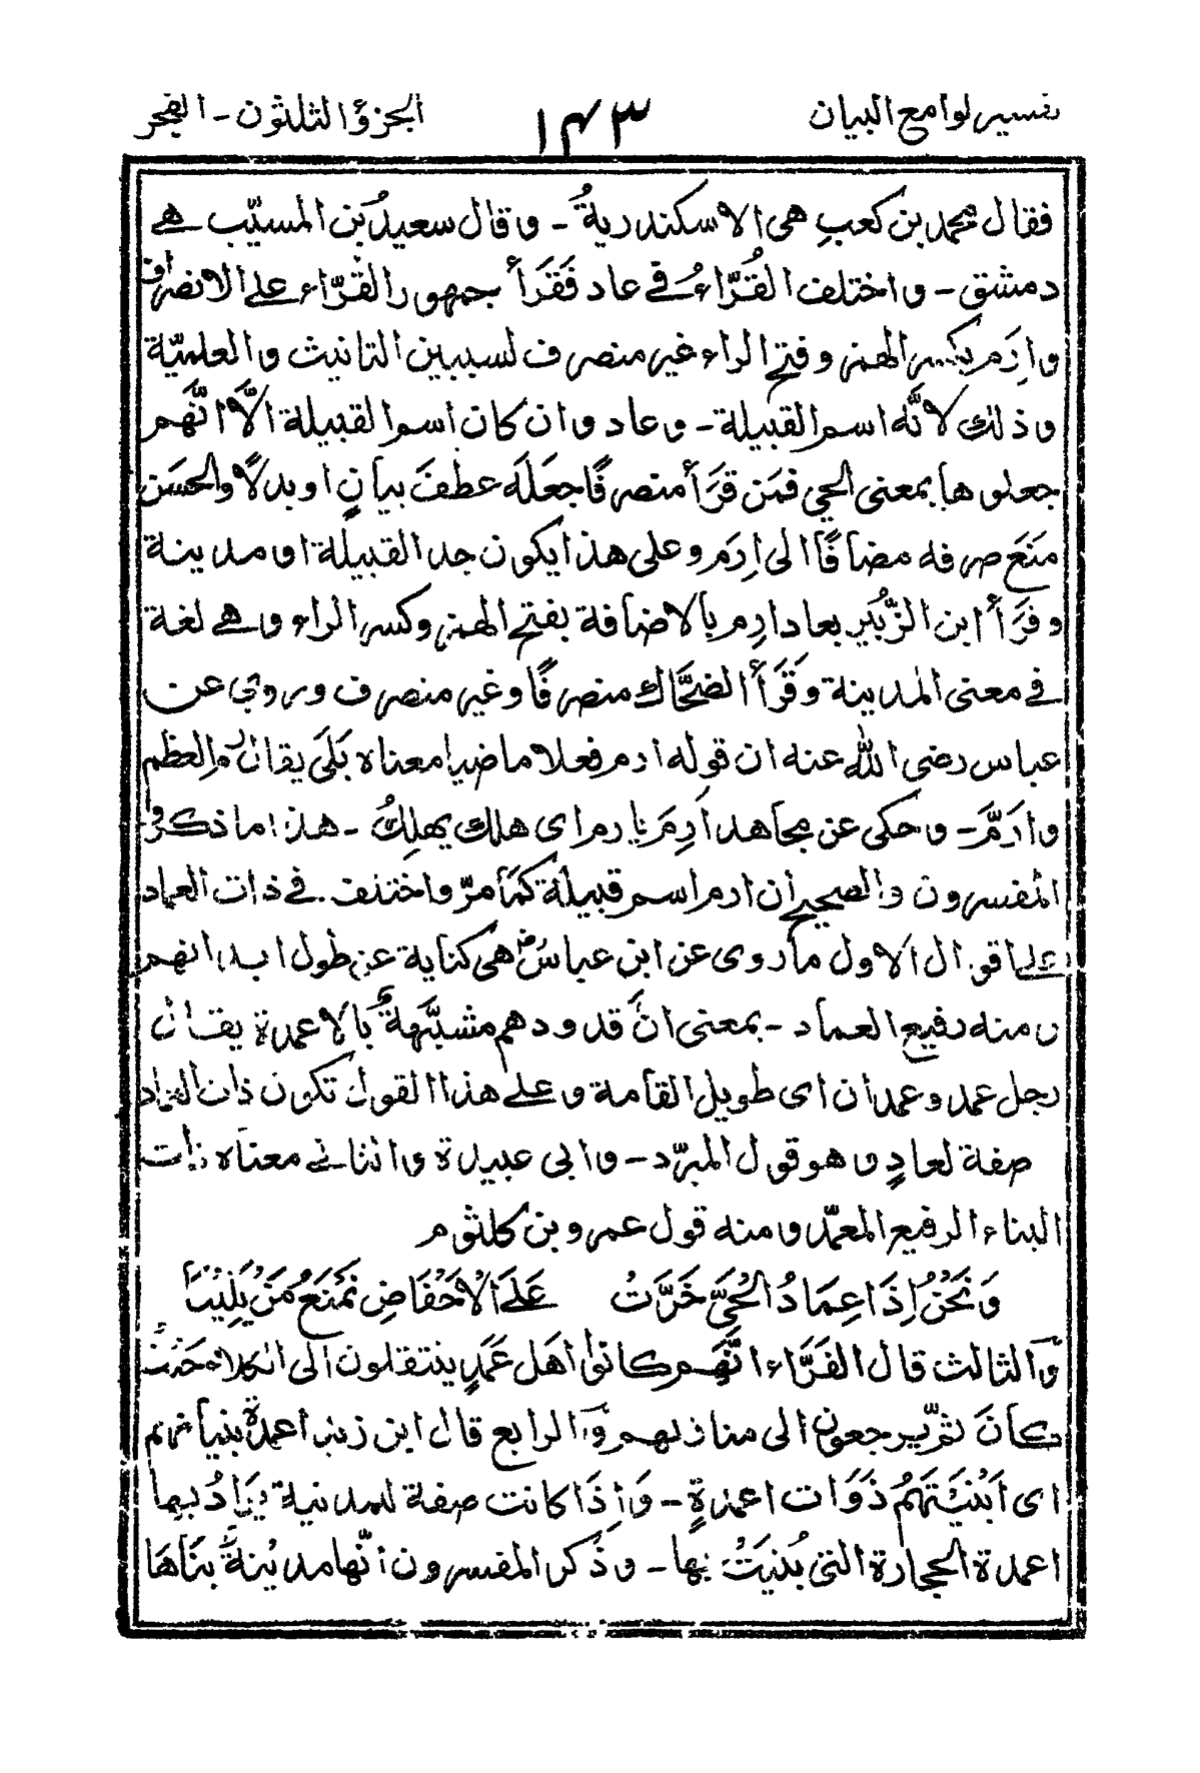 تفسير لوامع البيان ١٤٣ الجزؤ الثلثون - الفجر
فقال محمد بن كعبِ هى الاسكندريةُ - وقال سعيدُ بن المسيّب هے
دمشق - واختلف القُرّاءُ فے عاد فَقَرَأَ جمهور القُرّاء علے الانصراف
وارِمَ بكسر الهمز وفتح الراء غير منصرف لسببين التانيث والعلميّة
وذلك لانّه اسم القبيلة - وعاد وان كان اسم القبيلة الّا انّهم
جعلوها بمعنى الحي فمَن قَرَأَ منصرفًا جعَلَه عطفَ بيانٍ او بدلًا والحسَن
مَنَعَ صرفه مضافًا الى ارِدَم وعلى هذا يكون جد القبيلة او مدينة
وقَرَأَ ابن الزُّبير بعاد ارِم بالاضافة بفتح الهمز وكسر الراء وهے لغة
فے معنى المدينة وقَرَأَ الضحّاك منصرفًا وغير منصرف وروي عن
عباس رضى الله عنه ان قوله ارم فعلا ماضيا معناه بَلَى يقال رم العظم
وارَمَّ - وحكى عن مجاهد اَرِمَ يارم اى هلك يهلِكُ - هذا ما ذكره
المفسرون والصحيح ان ارم اسم قبيلة كما مرّ واختلف فے ذات العماد
علے اقوال الاول ما روى عن ابن عباسؓ هى كناية عن طول ابدانهم
ومنه رفيع العماد - بمعنى انَّ قدودهم مشبَّهةٌ بالاعمدة يقال
رجل عمد وعمدان اى طويل القامة وعلے هذا القول تكون ذات العماد
صفة لعادٍ وهو قول المبرّد - وابى عبيدة والثانے معناه ذات
البناء الرفيع المعمّد ومنه قول عمرو بن كلثوم
وَنَحْنُ اِذَا عِمَادُ الحُيَّ خَرَّتُ عَلَے الْاَحْفَاضِ نَمْنَعُ مَنْ يَلِيْنَا
والثالث قال الفَرَّاء انَّهم كانوا اهل عَمَدٍ ينتقلون الى الكلاء حَيْثُ
كانَ ثمّ يرجعون الى منازلهم والرابع قال ابن زيد اعمدةُ بنيانهم
اى اَبْنيَتَهُمْ ذَوَات اعمدةٍ - وَاِذَا كانت صفة للمدينة يُرَادُ بها
اعمدة الحجارة التى بُنيَتْ بها - وذُكر المفسرون انّها مدينةٌ بنَاهَا